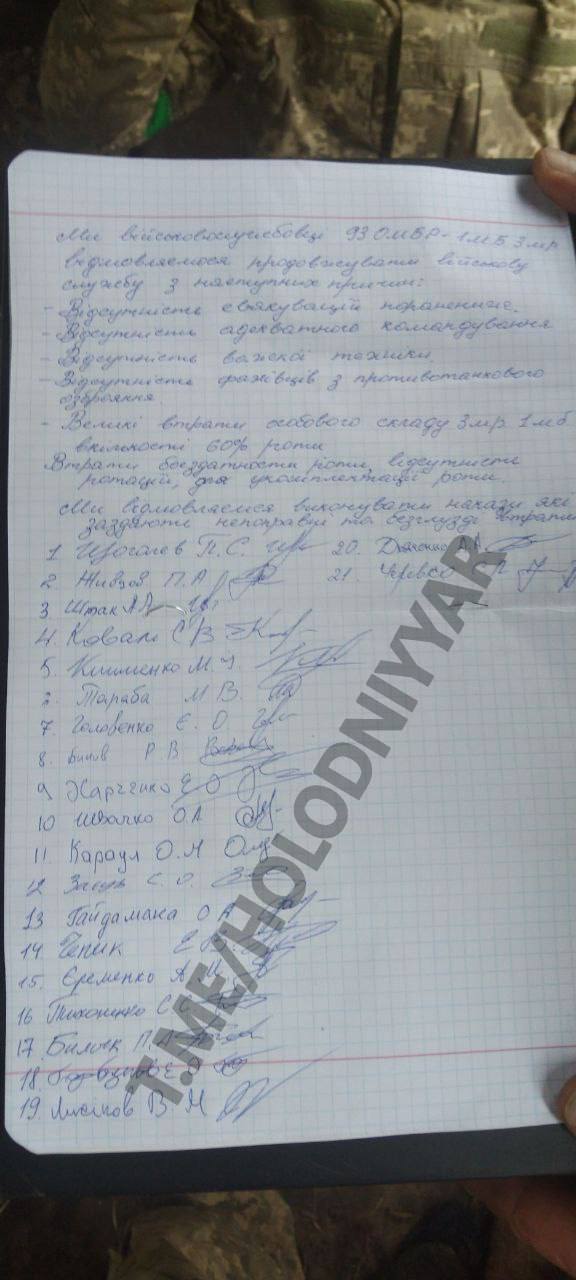 Ми військовослужбовці 93 ОМБР 1МБ 3мр
відмовляємося продовжувати військову
службу з наступних причин:
- Відсутність евакуацій поранених.
- Відсутність адекватного командування
- Відсутність важкої техніки.
- Відсутність фахівців з противотанкового
озброяння
- Великі втрати особового складу 3мр 1мб
вкількості 60% роти
Втрати боєздатности роти, відсутність
ротацій, для укомплектації роти.
Ми відмовляємся виконувати накази які
заздають непоправні та безглузді втрати
1 П.С. 20. А.А.
2. П.А 21. 
3. Штак
4. Коваль С В
5. Клименко М.
Тараба М В.
7. Головенко Є. О
8. Р В
9 Харченко Е О
10 Швачко О.А
11. Караул О.М
12 С. О.
13 Гайдамака О А
14. Чепик Е
15. Єременко А М.
16 Тихоненко С
17 П.А
18
19. В М
T.ME/HOLODNIYYAR